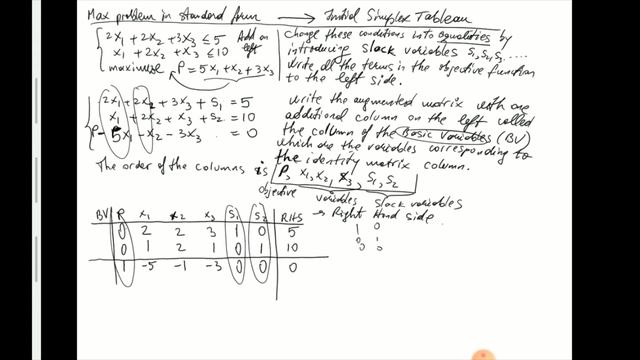 Max problem in standard form → Initial Simplex Tableau
2x₁ + 2x₂ + 3x₃ ≤ 5 Add on left
x₁ + 2x₂ + x₃ ≤ 10
maximise P = 5x₁ + x₂ + 3x₃
Change these conditions into equalities by
introducing slack variables S₁, S₂, S₃ ....
Write all the terms in the objective function
to the left side.
2x₁ + 2x₂ + 3x₃ + S₁ = 5
x₁ + 2x₂ + x₃ + S₂ = 10
P - 5x₁ - x₂ - 3x₃ = 0
Write the augmented matrix with one
additional column on the left called
the column of the Basic variables (BV)
which are the variables corresponding to
the identity matrix column.
The order of the columns is P, x₁, x₂, x₃, S₁, S₂
objective variables slack variables
→ Right Hand side.
BV P x₁ x₂ x₃ S₁ S₂ RHS
0 2 2 3 1 0 5
0 1 2 1 0 1 10
1 -5 -1 -3 0 0 0
1 0
0 1
0 0